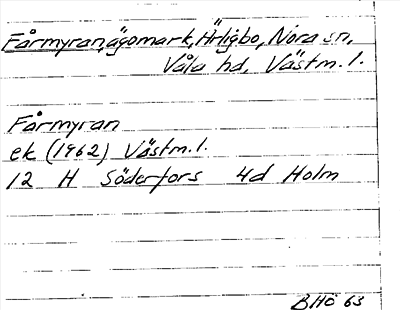 Fårmyran, ägomark, Härligbo, Nora sn,
Våla hd, Västm. l.
Fårmyran
ek (1962) Västm. l.
12 H Söderfors 4d Holm
BHÖ 63